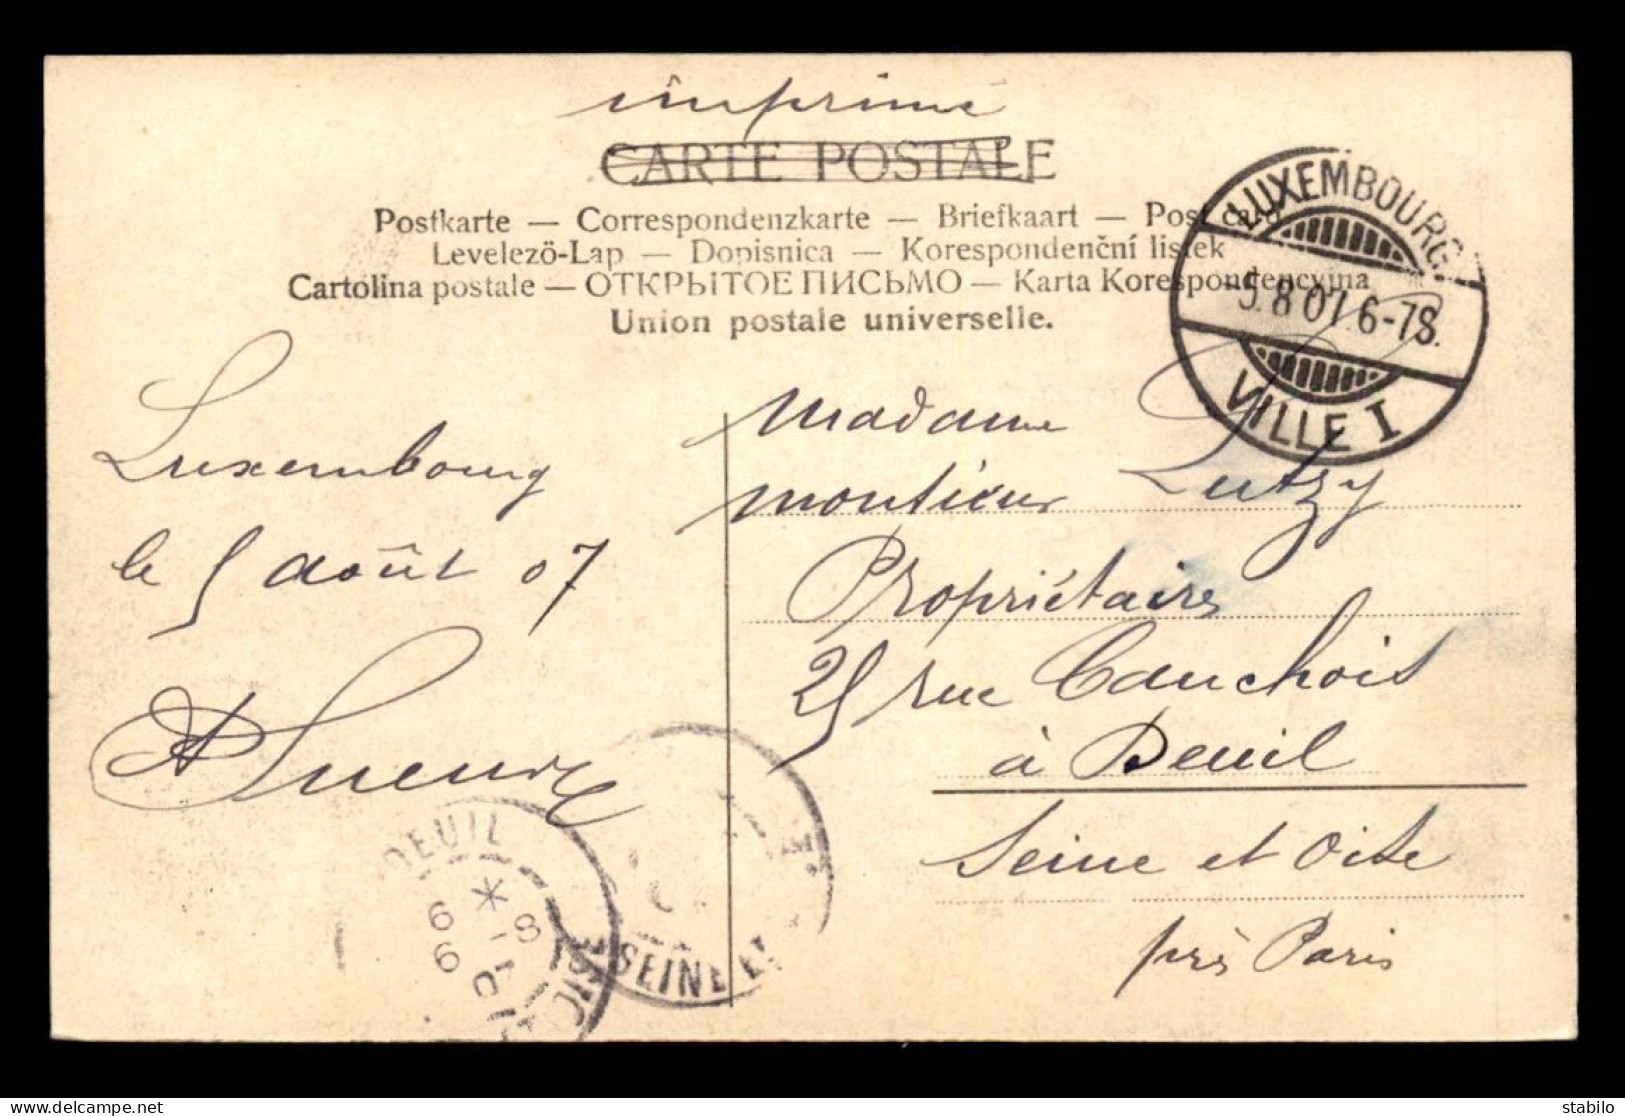 imprimé
CARTE POSTALE
Postkarte — Correspondenzkarte — Briefkaart — Post card
Levelező-Lap — Dopisnica — Korespondenční lístek
Cartolina postale — ОТКРЫТОЕ ПИСЬМО — Karta Korespondencyjna
Union postale universelle.
LUXEMBOURG
5.8.07.6-7S.
VILLE I
Luxembourg
le 5 août 07
Madame
monsieur Lutzy
Propriétaires
25 rue Cauchois
à Deuil
Seine et Oise
près Paris
DEUIL
SEINE ET
stabilo